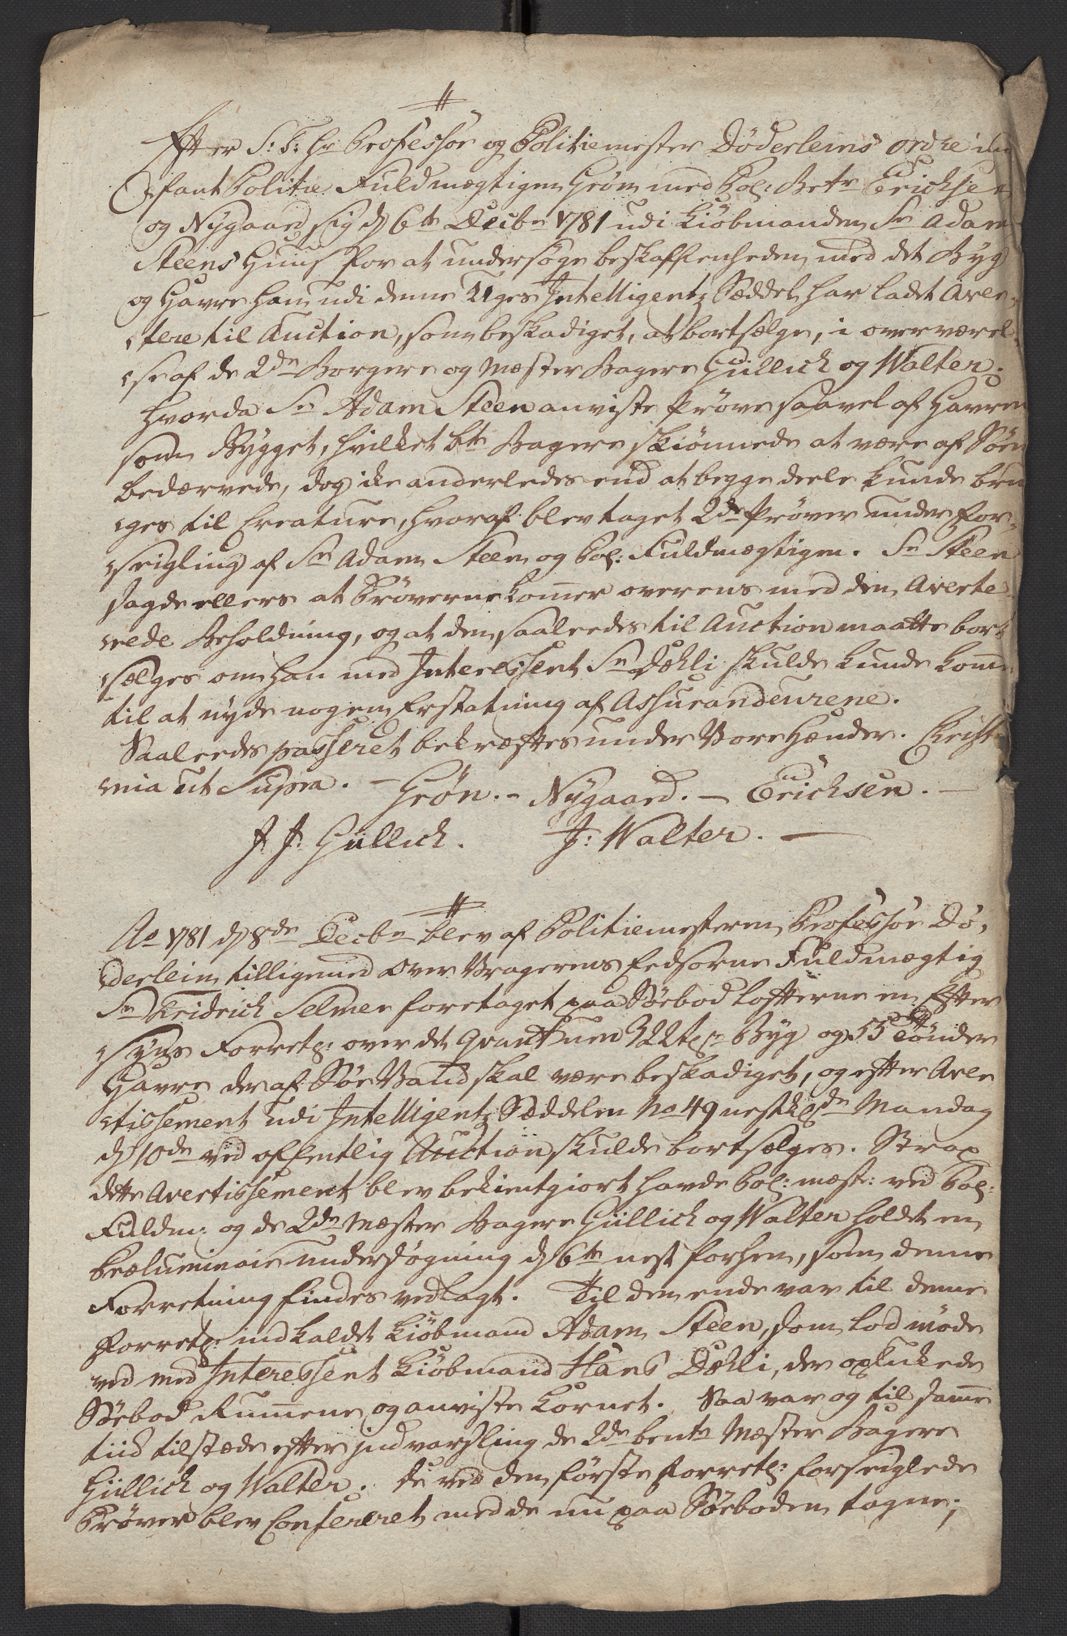 Efter S: T: Hr Professor og Politiemester Døderleins ordre ind
fant Politie Fuldmægtigen Grøn med Pol: Betr Erichsen
og Nygaard sig d 6te Decbr 1781 udi Kiøbmanden Sr Adam
Steens Huus for at undersøge beskaffenheden med det Byg
og Havre ham udi denne Uges Intelligentz Sæddel har ladet Aver-
tere til Auction, som beskadiget, at bortsælge, i overværel
se af de 2de Borgere og Mæster Bagere Güllich og Walter.
Hvorda Sr Adam Steen anviste Prøve saavel af Havren
som Bygget, hvilket bte Bagere skiønnede at være af Søen
bedærvede, dog ike anderledes end at begge deele kunde bru
ges til Creature, hvoraf blev taget 2de Prøver under For-
seigling af Sr Adam Steen og Pol: Fuldmægtigen. Sr Steen
sagde ellers at Prøverne komer overens med den Averte
rede Beholdning, og at den saaleedes til Auction maatte bort
sælges om han med Interessent Sr Dæhli skulde kunde kome
til at nyde nogen Erstatning af Assurandeurene.
Saaleeds passeret bekræftes under Vore Hænder. Christi
ania ut Supra. - Grøn. - Nygaard. - Erichsen. -
J. J. Güllich. J: Walter. -
Ao 1781 d 8de Decbr blev af Politiemesteren Professor Dø,
derlein tilligemed Over Vragerens Fedsorne Fuldmægtig
Sr Fridrich Selmer foretaget paa Søebod Lofterne en Efter
Syns Forretg: over det Qvantum 322 Tr Byg og 55 Tønder
Havre der af Søe Vand skal være beskadiget, og efter Aver
tissement udi Intelligentz Sæddelen No 49 nestk Mandag
d 10de ved offentlig Auction skulde bortsælges. Strax
dette Avertissement blev bekientgiort havde Pol: mest: ved Pol:
Fuldm: og de 2de Mæster Bagere Güllich og Walter holdt en
Præluminair undersøgning d 6te nest forhen, som denne
Forretning findes vedlagt. Til den ende var til denne
Forretg: indkaldet Kiøbmand Adam Steen, som lod møde
ved med Interessent Kiøbmand Hans Dæhli, der oplukede
Søebod Rummene og anviste Kornet. Saa var og til samme
tiid tilstæde efter indvarsling de 2de bente Mæster Bagere
Güllich og Walter. De ved den første Forretg: forseiglede
Prøver blev Confereret med de nu paa Søeboden tagne;